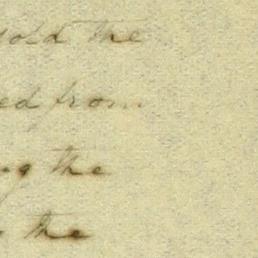 sold the
ed from
ng the
the